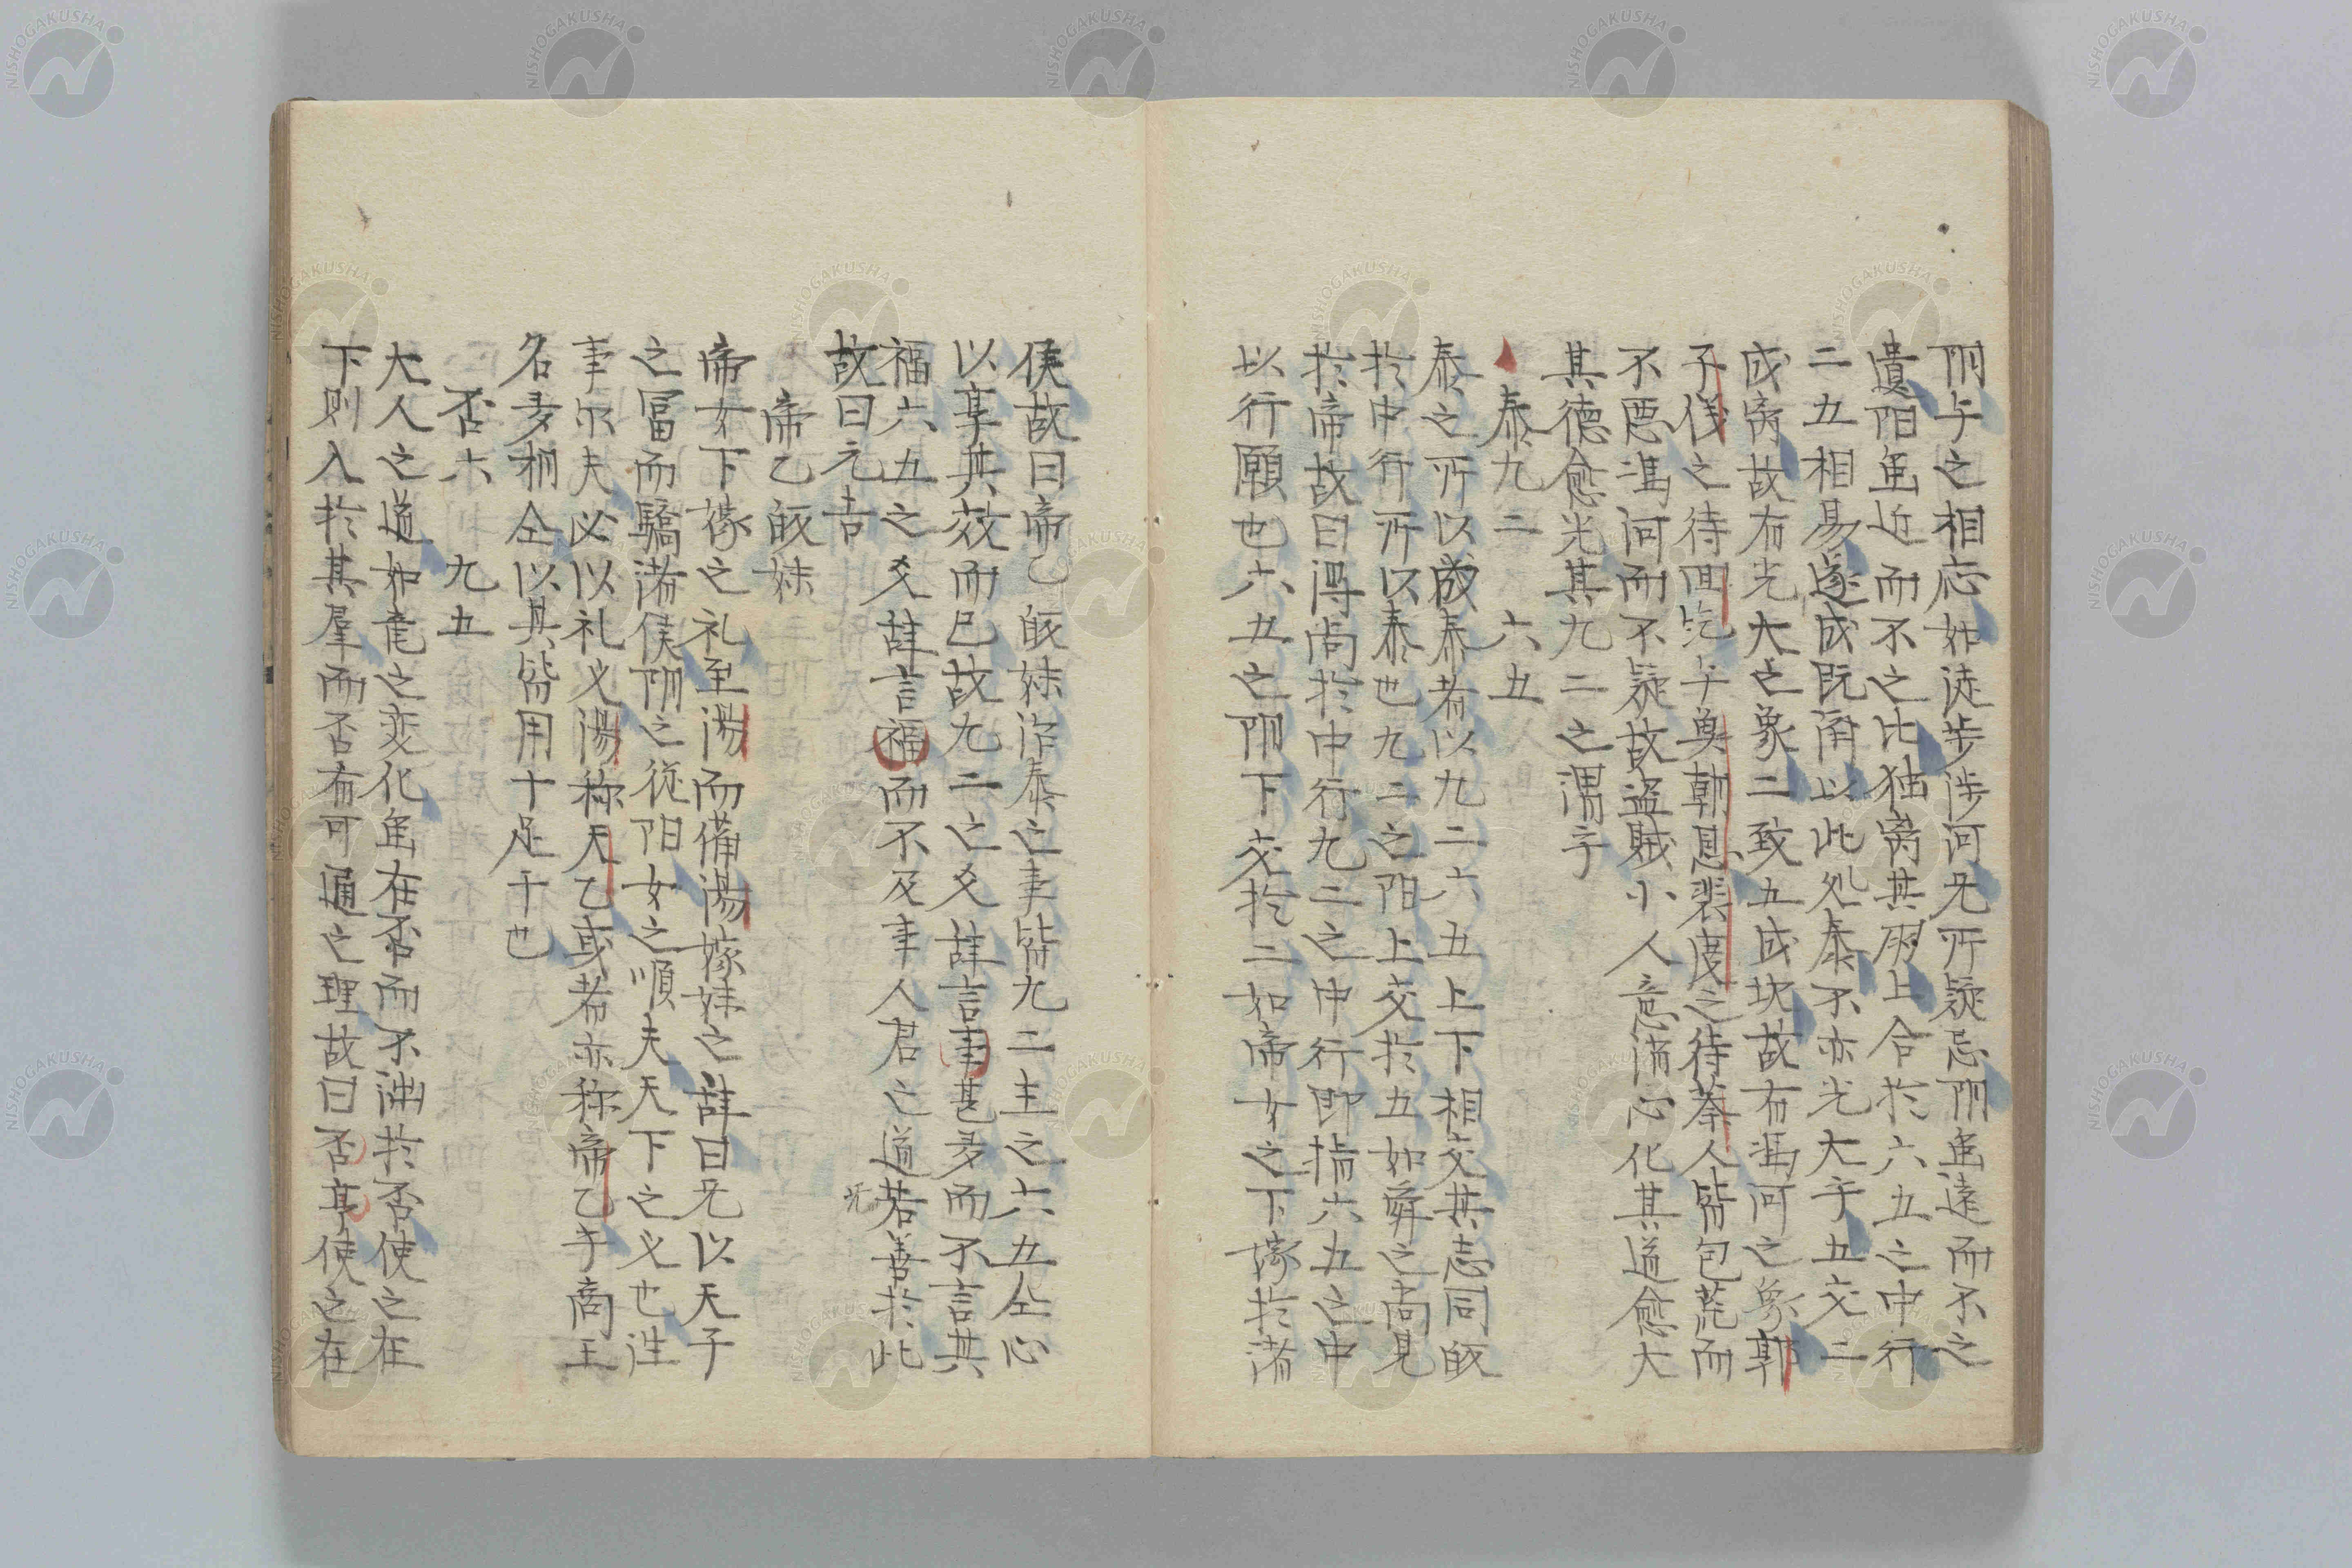 阴与之相应如徒步涉河无所疑忌阴虽遠而不之
遺阳虽近而不之比独离其朋上合於六五之中行
二五相易遂成既济以此处泰不亦光大乎五交二
成离故有光大之象二致五成坎故有馮河之象郭
子仪之待回纥与奠勒恩裴度之待蔡人皆包荒而
不恶馮河而不疑故盗賊小人意满心化其道愈大
其德愈光其九二之谓乎
泰九二 六五
泰之所以成泰者以九二六五上下相交其志同皈
於中行所以泰也九二之阳上交於五如舜之尚見
於帝故曰得尚於中行九二之中行即指六五之中
以行願也六五之阴下交於二如帝女之下嫁於诸
侯故曰帝乙皈妹治泰之事皆九二主之六五全心
以享其效而已故九二之爻辞言事甚多而不言其
福六五之爻辞言福而不及事人君之道若善於此
故曰元吉
帝乙皈妹
帝女下嫁之礼至湯而備湯嫁妹之辞曰无以天子
之冨而驕诸侯阴之從阳女之順夫天下之义也往
事尔夫必以礼义湯称天乙或者亦称帝乙乎商王
名多相仝以其皆用十足干也
否六 九五
大人之道如竜之变化虽在否而不浊於否使之在
下则入於其羣而否有可通之理故曰否亨使之在
NISHOGAKUSHA